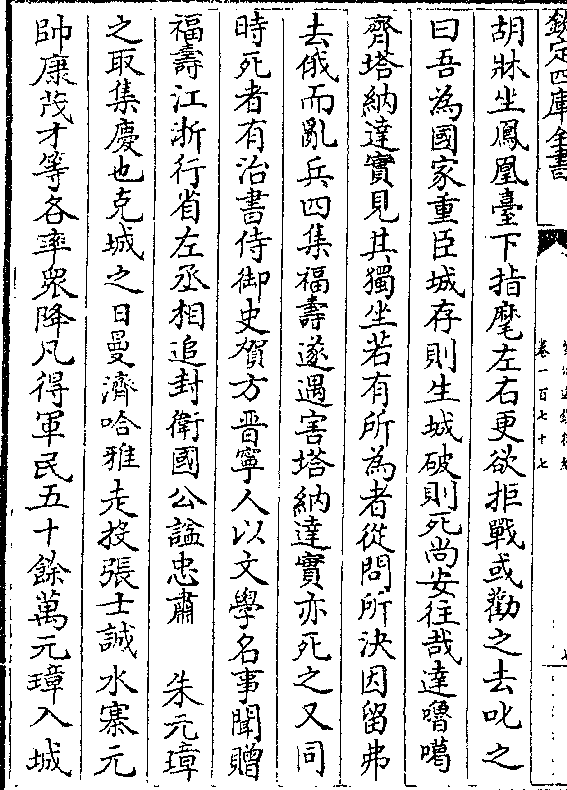 欽定四庫全書
卷一百七十七
胡牀坐鳳凰臺下指麾左右更欲拒戰或勸之去叱之
曰吾為國家重臣城存則生城破則死尚安往哉達嚕噶
齊塔納達實見其獨坐若有所為者從問所決因留弗
去俄而亂兵四集福壽遂遇害塔納達實亦死之又同
時死者有治書侍御史賀方晉寧人以文學名事聞贈
福壽江浙行省左丞相追封衛國公諡忠肅　朱元璋
之取集慶也克城之日曼濟哈雅走投張士誠水寨元
帥康茂才等各率衆降凡得軍民五十餘萬元璋入城